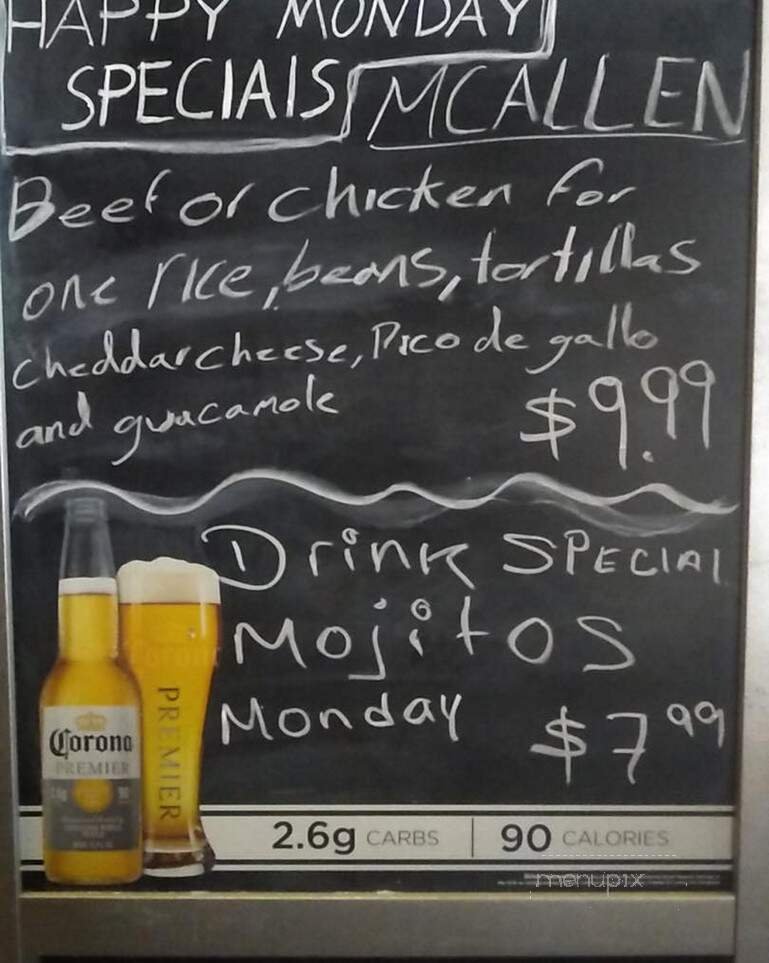 HAPPY MONDAY
SPECIALS MCALLEN
Beef or chicken for
one rice, beans, tortillas
cheddar cheese, Pico de gallo
and guacamole $9.99
Drink SPECIAL
Mojitos
Monday $7.99
Corona
PREMIER
Corona
PREMIER
2.6g CARBS | 90 CALORIES
menupix